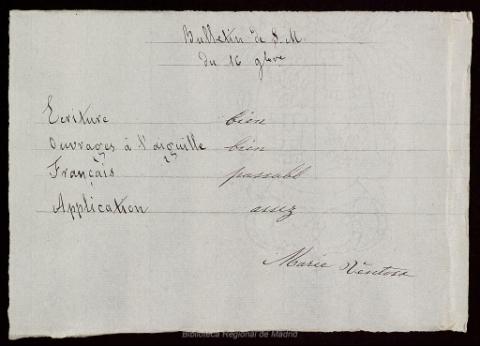 Bulletin de S. M.
du 16 9bre
Ecriture bien
Ouvrages à l'aiguille bien
Français passable
Application assez
Marie
Biblioteca Regional de Madrid